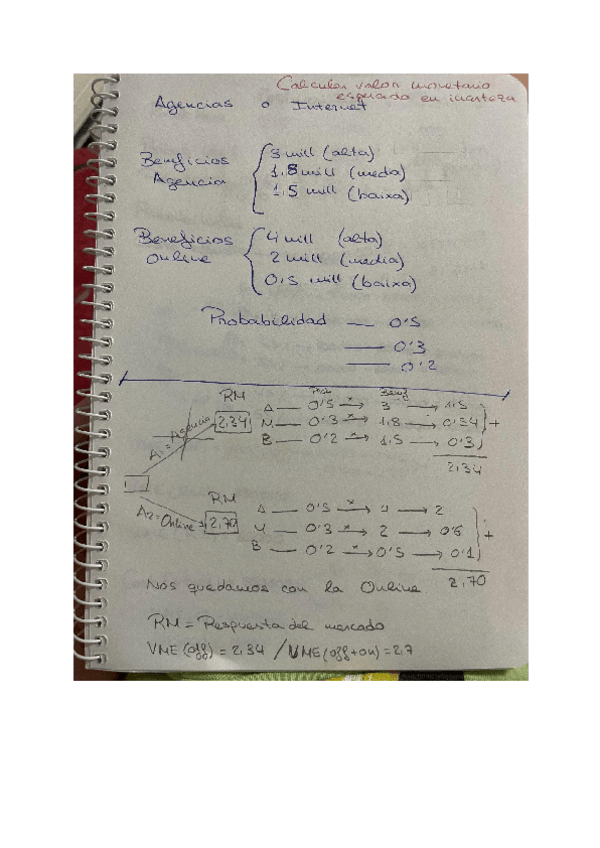 Calcular valor monetario
esperado en incerteza
Agencias o Internet
Beneficios Agencia { 3 mill (alta)
1,8 mill (media)
1,5 mill (baixa)
Beneficios Online { 4 mill (alta)
2 mill (media)
0'5 mill (baixa)
Probabilidad — 0'5
— 0'3
— 0'2
RM
A — 0'5 x→ 3 → 1,5
M — 0'3 x→ 1,8 → 0'54
B — 0'2 x→ 1,5 → 0'3
+
A1 = Agencia 2,34
2,34
RM
A — 0'5 x→ 4 → 2
M — 0'3 x→ 2 → 0'6
B — 0'2 x→ 0'5 → 0'1
+
A2 = Online 2,70
2,70
Nos quedamos con la Online
RM = Respuesta del mercado
VME (off) = 2,34 / VME (off+on) = 2,7